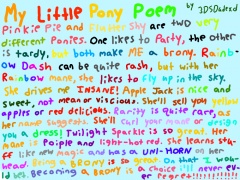 My Little Pony Poem by JDSDadssd
Pinkie Pie and Flutter Shy are two very
different Ponies. One likes to Party, the other
is tardy, but both make ME a brony. Rain-
bow Dash can be quite rash, but with her
Rainbow mane, she likes to fly up in the sky.
She drives me INSANE! Apple Jack is nice and
sweet, not mean or viscious. She'll sell you yellow
apples or red delicious. Rarity is quite rare, as
her name suggests. She'll curl your mane or design
you a dress! Twilight Sparkle is so great. Her
mane is Poiple and light-hot red. She learns stuff
like new magic and has a UNI-HORN on her
head. Being a BRONY is so great. On that I wou-
ld bet. Becoming a BRONY is a choice I'll never ev-
er regret!!!!!!!!